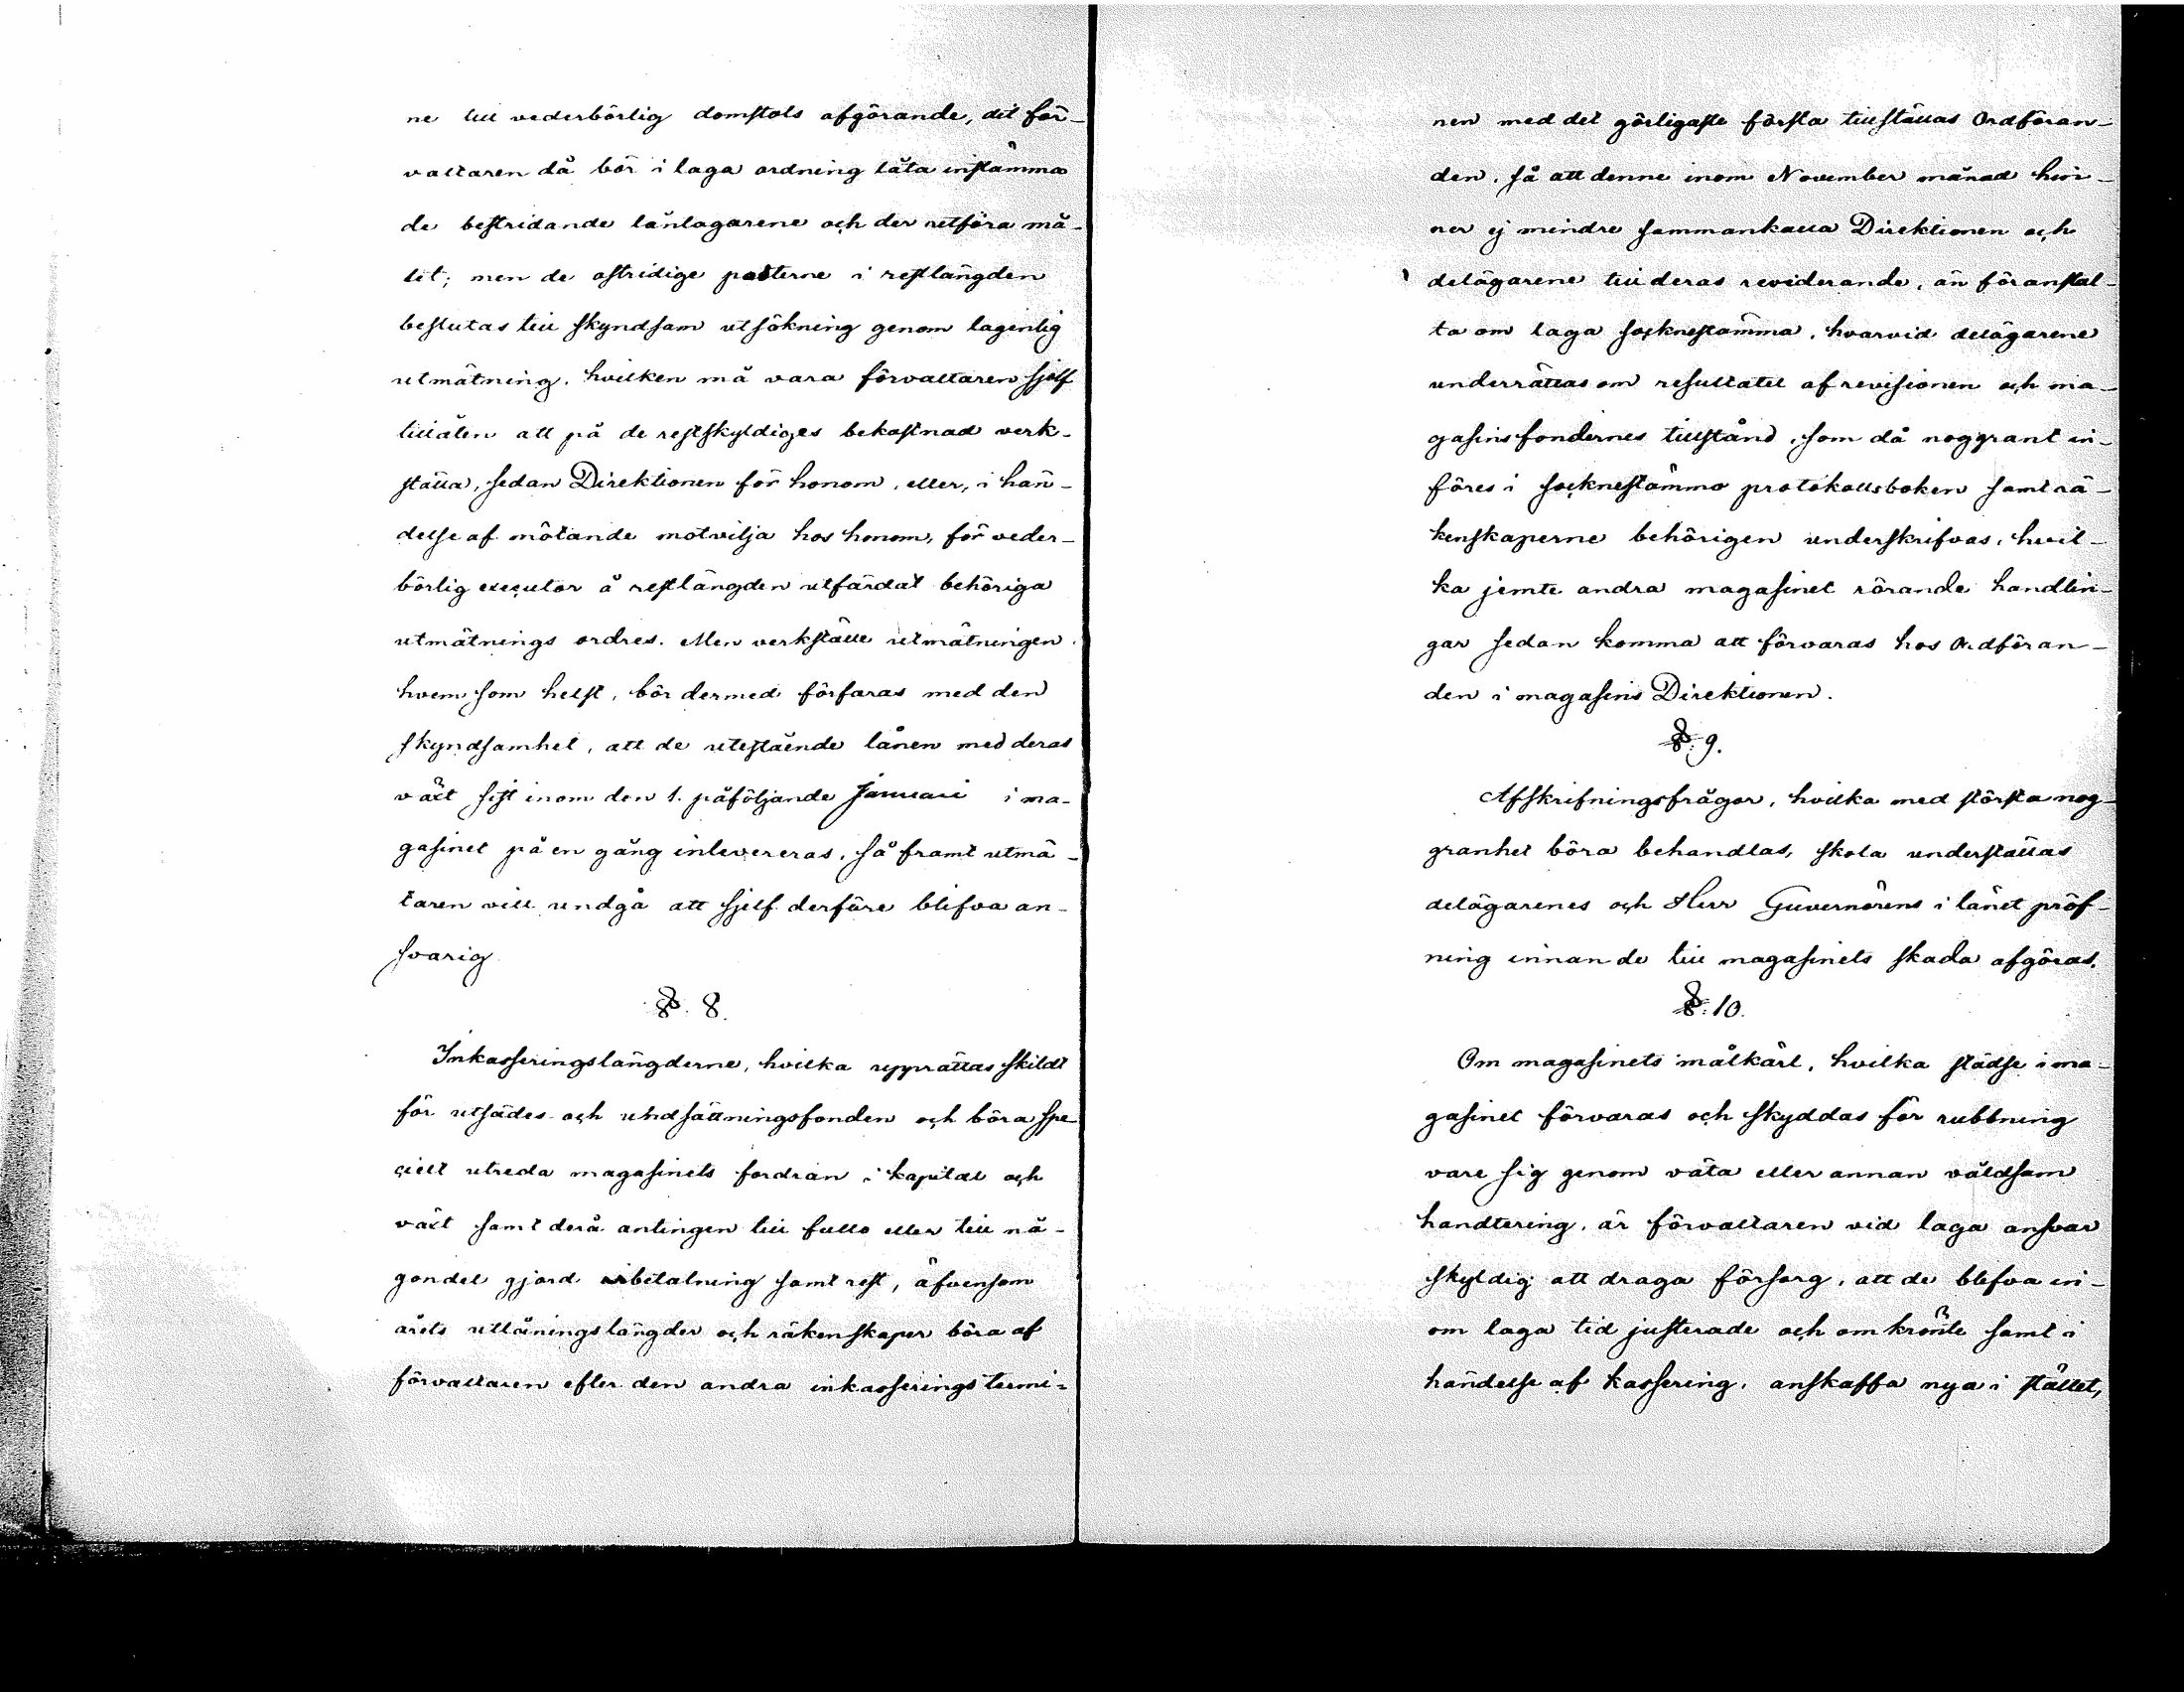 ne till vederbörlig domstols afgörande, dit för-
valtaren då bör i laga ordning låta instämma
de bestridande låntagarene och der utföra må-
let; men de ostridige posterne i restlängden
beslutas till skyndsam utsökning genom lagenlig
utmätning, hvilken må vara förvaltaren sjelf
tillåten att på de restskyldiges bekostnad verk-
ställa, sedan Direktionen för honom, eller, i hän-
delse af mötande motvilja hos honom, för veder-
börlig executor å restlängden utfärdat behöriga
utmätnings ordres. Men verkställe utmätningen
hvem som helst, bör dermed förfaras med den
skyndsamhet, att de utestående lånen med deras
växt sist inom den 1. påföljande Januari i ma-
gasinet på en gång inlevereras, så framt utmä-
taren vill undgå att sjelf derföre blifva an-
svarig
§. 8.
Inkasseringslängderne, hvilka upprättas skildt
för utsädes och undsättningsfonden och böra spe-
cielt utreda magasinets fordran i kapital och
växt samt derå antingen till fullo eller till nå-
gondel gjord betalning samt rest, äfvensom
årets utlåningslängder och räkenskaper böra af
förvaltaren efter den andra inkasserings termi-
nen med det görligaste första tillställas Ordföran-
den, så att denne inom November månad hin-
ner ej mindre sammankalla Direktionen och
delägarene till deras reviderande, än föranstal-
ta om laga socknestämma, hvarvid delägarene
underrättas om resultatet af revisionen och ma-
gasinsfondernes tillstånd, som då noggrant in-
föres i socknestämmo protokollsboken samt rä-
kenskaperne behörigen underskrifvas, hvil-
ka jemte andra magasinet rörande handlin-
gar sedan komma att förvaras hos Ordföran-
den i magasins Direktionen.
§. 9.
Afskrifningsfrågor, hvilka med största nog-
granhet böra behandlas, skola underställas
delägarenes och Herr Guvernörens i länet pröf-
ning innan de till magasinets skada afgöras.
§. 10.
Om magasinets målkärl, hvilka städse i ma-
gasinet förvaras och skyddas för rubbning
vare sig genom väta eller annan våldsam
handtering, är förvaltaren vid laga ansvar
skyldig att draga försorg, att de blifva in-
om laga tid justerade och omkrönte samt i
händelse af kassering, anskaffa nya i stället,